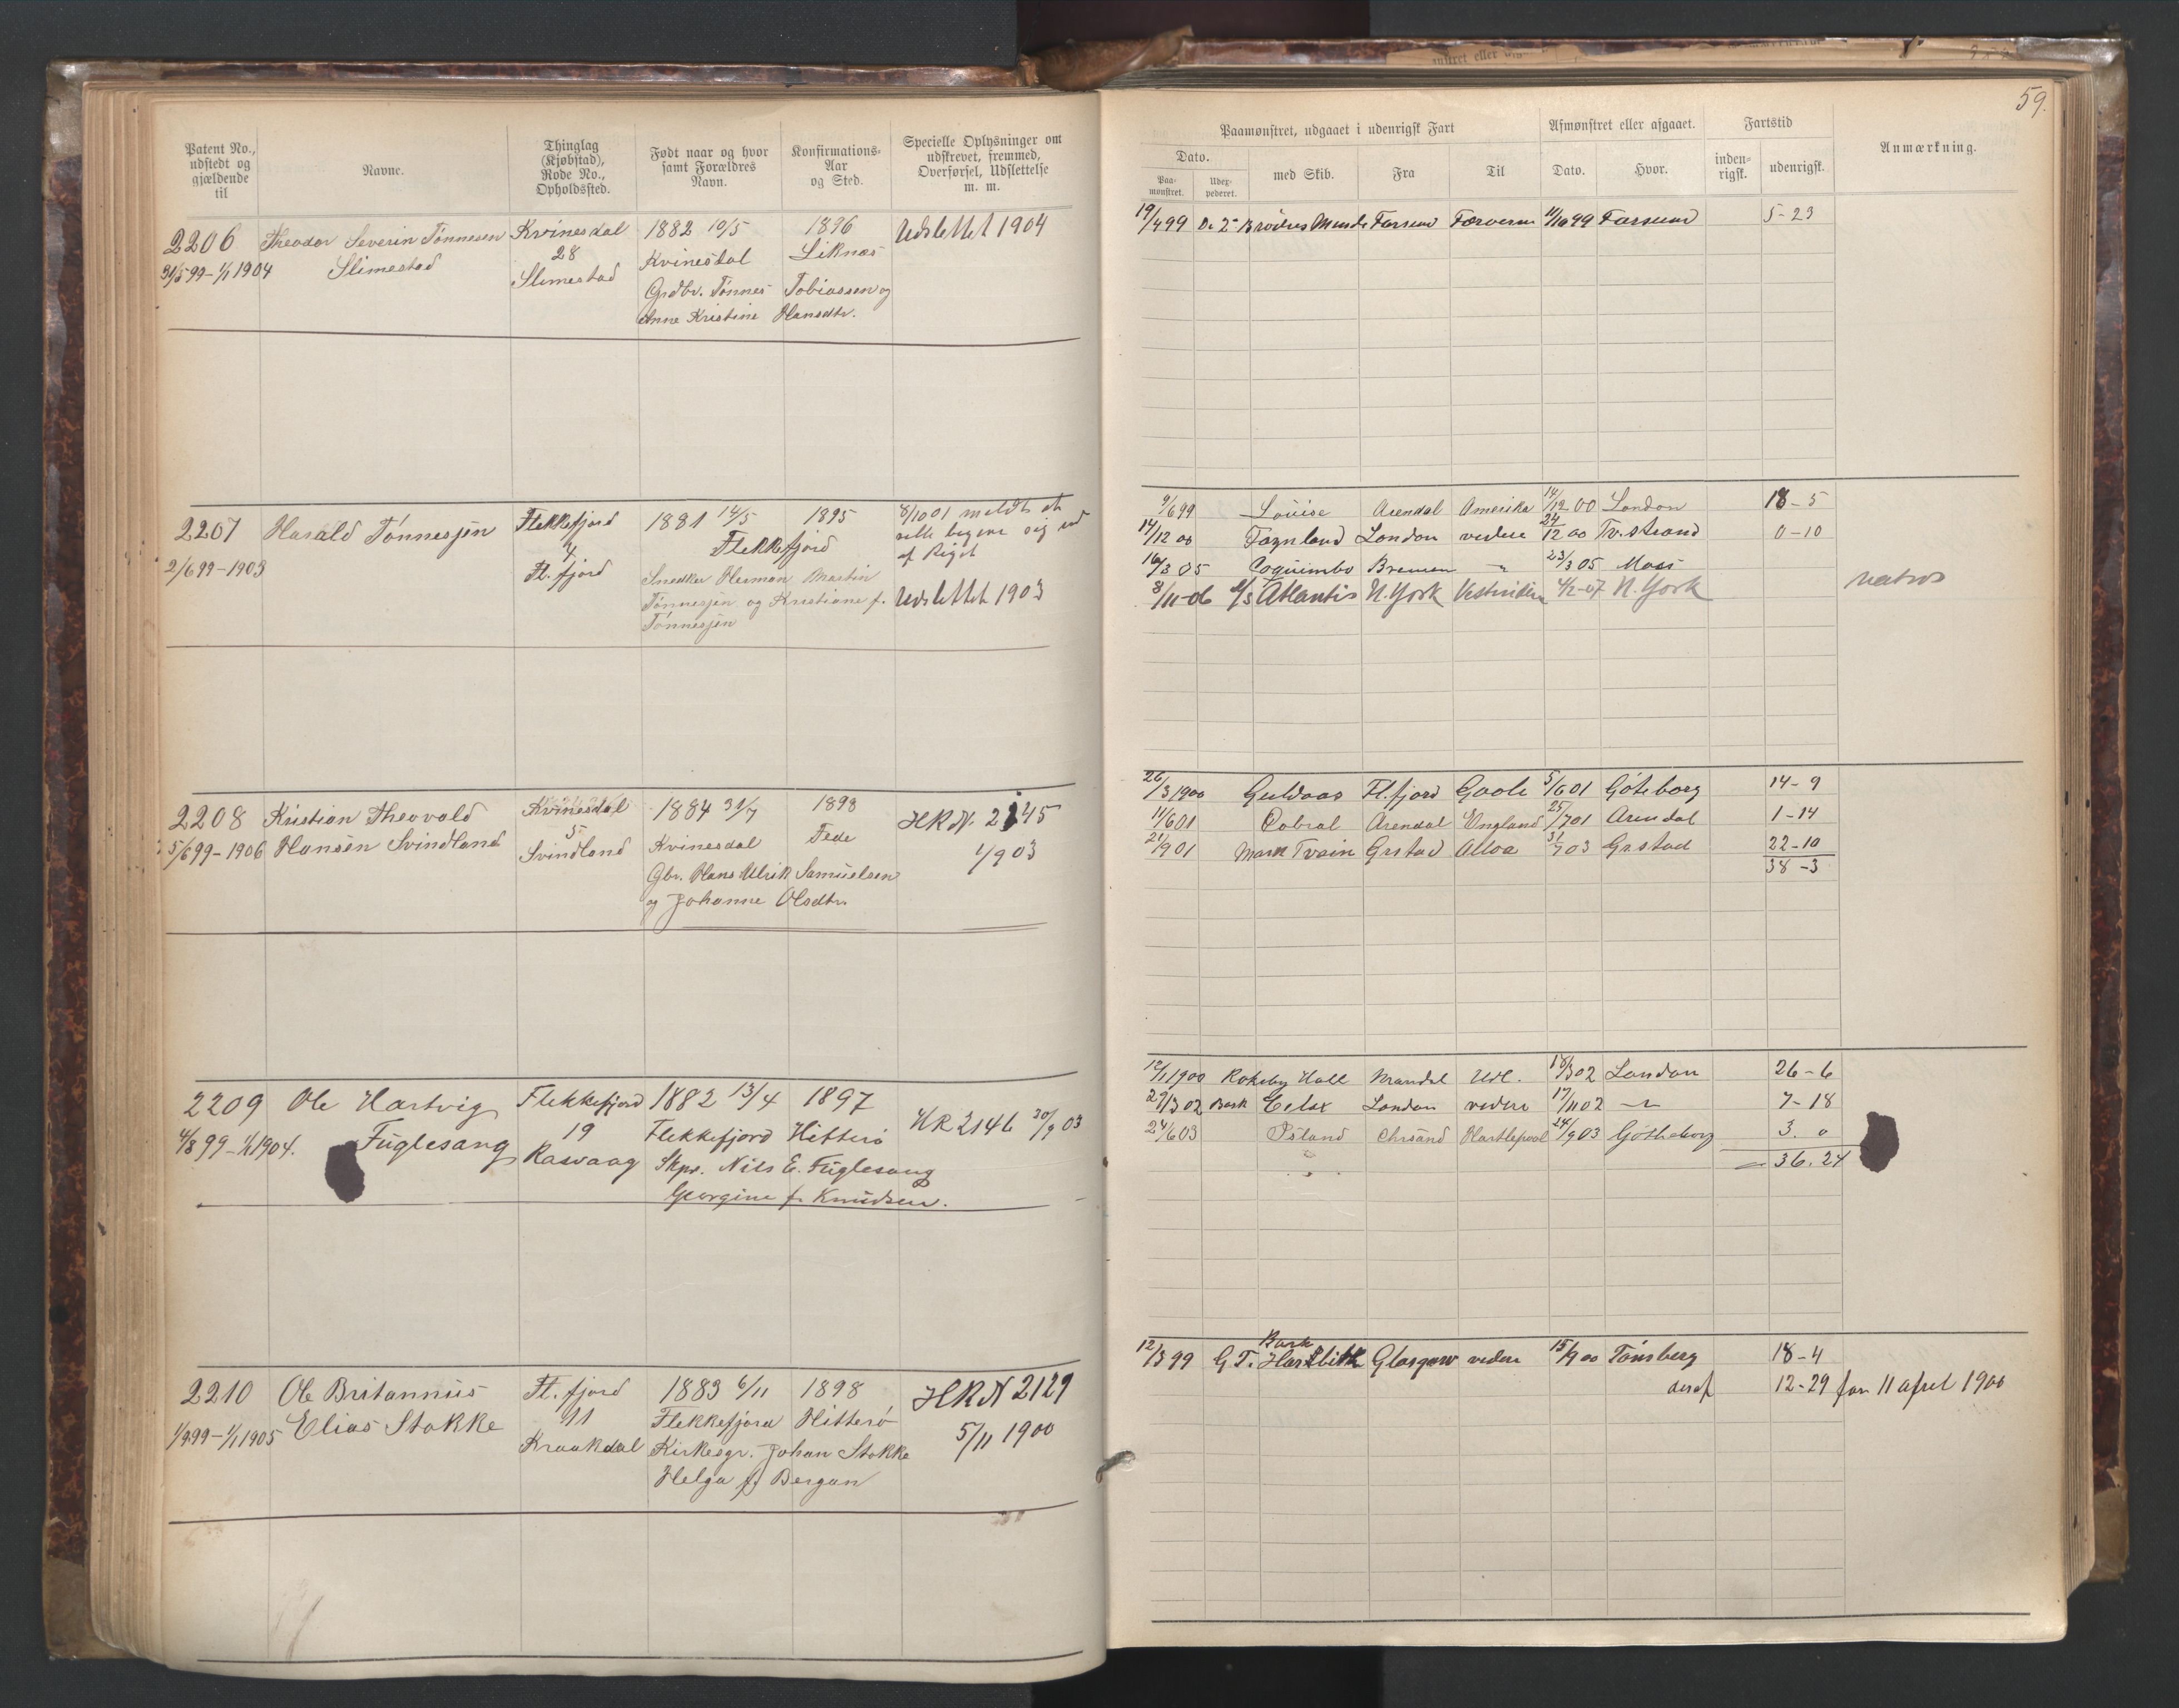 59.
Patent No., udstedt og gjældende til
Navne.
Thinglag (Kjøbstad), Rode No., Opholdssted.
Født naar og hvor samt Forældres Navn.
Konfirmations-Aar og Sted.
Specielle Oplysninger om udskrevet, fremmed, Overførsel, Udslettelse m. m.
Paamønstret, udgaaet i udenrigsk Fart
Afmønstret eller afgaaet.
Fartstid
Anmærkning.
Dato.
Paa-mønstret.
Udex-pederet.
med Skib.
Fra
Til
Dato.
Hvor.
inden-rigsk.
udenrigsk.
2206 Theodor Severin Tönnesen Kvinesdal 1882 10/5 1896 Udslettet 1904
31/5 99 - 1/1 1904 Slimestad 28 Kvinesdal Liknæs
Slimestad Grdbr. Tönnes Tobiassen og
Anne Kristine Hansdtr.
19/4 99 De 2de Brödres Minde Farsund 11/10 99 Farsund 5-23
2207 Harald Tönnesjen Flekkefjord 1881 14/5 1895 8/10 01 meldt at
4 Flekkefjord ville begive sig ud
2/6 99 - 1903 Fl. fjord af Riget
Snedker Herman Martin
Tönnesjen og Kristiane f. Udslettet 1903
Tönnesjen
9/6 99 Louise Arendal Amerika 14/12 00 London 18-5
14/12 00 London videre 24/12 00 Tv.strand 0-10
16/3 05 Coquimbo Bremen " 23/3 05 Moss
8/11-06 S/S Atlantis N. York Vestindien 4/2-07 N. York
Matros
2208 Kristian Theovald Kvinesdal 1884 31/7 1898 HR N. 2145
5/6 99 - 1906 Hansen Svindland 5 Kvinesdal Fede 1/9 03
Svindland Gbr. Hans Ulrik Samuelsen
og Johanne Olsdtr.
26/3 1900 Guldaas Fl.fjord Goole 5/6 01 Göteborg 14-9
11/6 01 Cabral Arendal England 25/7 01 Arendal 1-14
21/9 01 Mark Tvain Grstad Alloa 31/7 03 Grstad 22-10
38-3
2209 Ole Hartvig Flekkefjord 1882 13/4 1897 HR 2146 30/9 03
4/8 99 - 1/1 1904. Fuglesang 19 Flekkefjord Hitterö
Rasvaag Skpr. Nils E. Fuglesang
Georgine f. Knudsen.
12/1 1900 Rokeby Hall Mandal Udl. 18/3 02 London 26-6
29/3 02 Bark London videre 17/11 02 7-18
24/6 03 Island Chrsand Hartlepool 24/9 03 Götheborg 3. 0
36. 24
2210 Ole Britannius Fl. fjord 1883 6/11 1898 HR N 2129
1/9 99 - 1/1 1905 Elias Stokke 41 Flekkefjord Hitterö 5/11 1900
Kraakdal Kirkesgr. Johan Stokke
Helga f. Bergan
12/3 99 G.T. Bark Glasgow videre 15/9 00 Tönsberg 18-4
deraf 12-29 för 11 april 1900